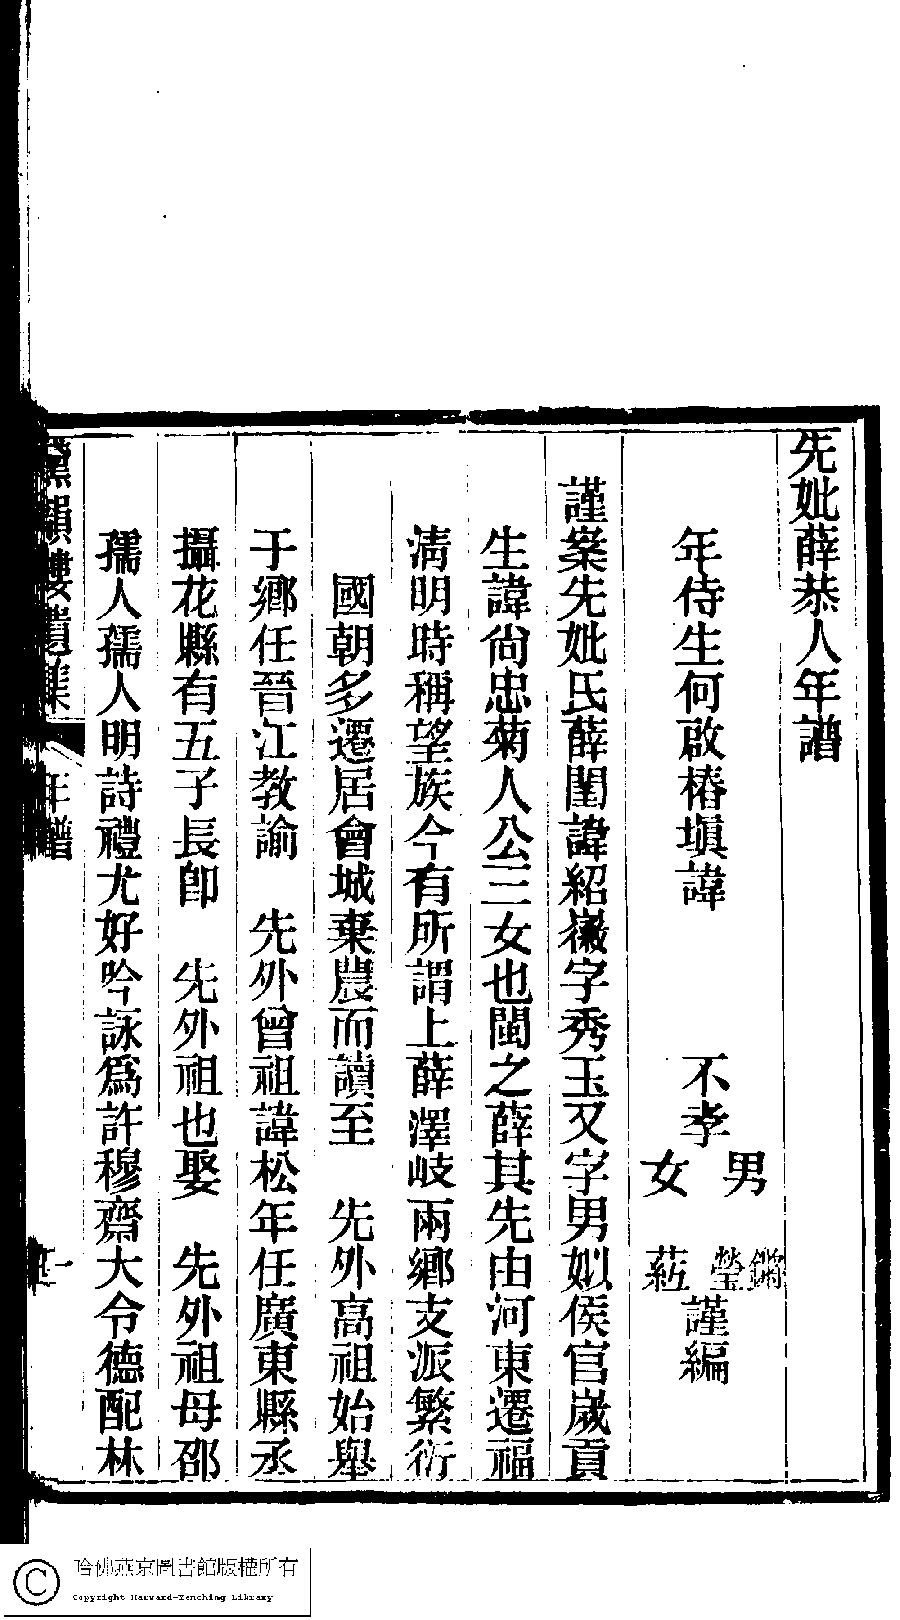 先妣薛恭人年譜
年侍生何啟椿塡諱　不孝男鏘瑩女薌謹編
謹案先妣氏薛閨諱紹徽字秀玉又字男姒侯官歲貢
生諱尙忠菊人公三女也閩之薛其先由河東遷福
淸明時稱望族今有所謂上薛澤岐兩鄉支派繁衍
國朝多遷居會城棄農而讀至　先外高祖始舉
于鄉任晉江教諭　先外曾祖諱松年任廣東縣丞
攝花縣有五子長卽　先外祖也娶　先外祖母邵
孺人孺人明詩禮尤好吟詠爲許穆齋大令德配林
黛韻樓遺集　年譜　一
哈佛燕京圖書館版權所有
Copyright Harvard-Yenching Library